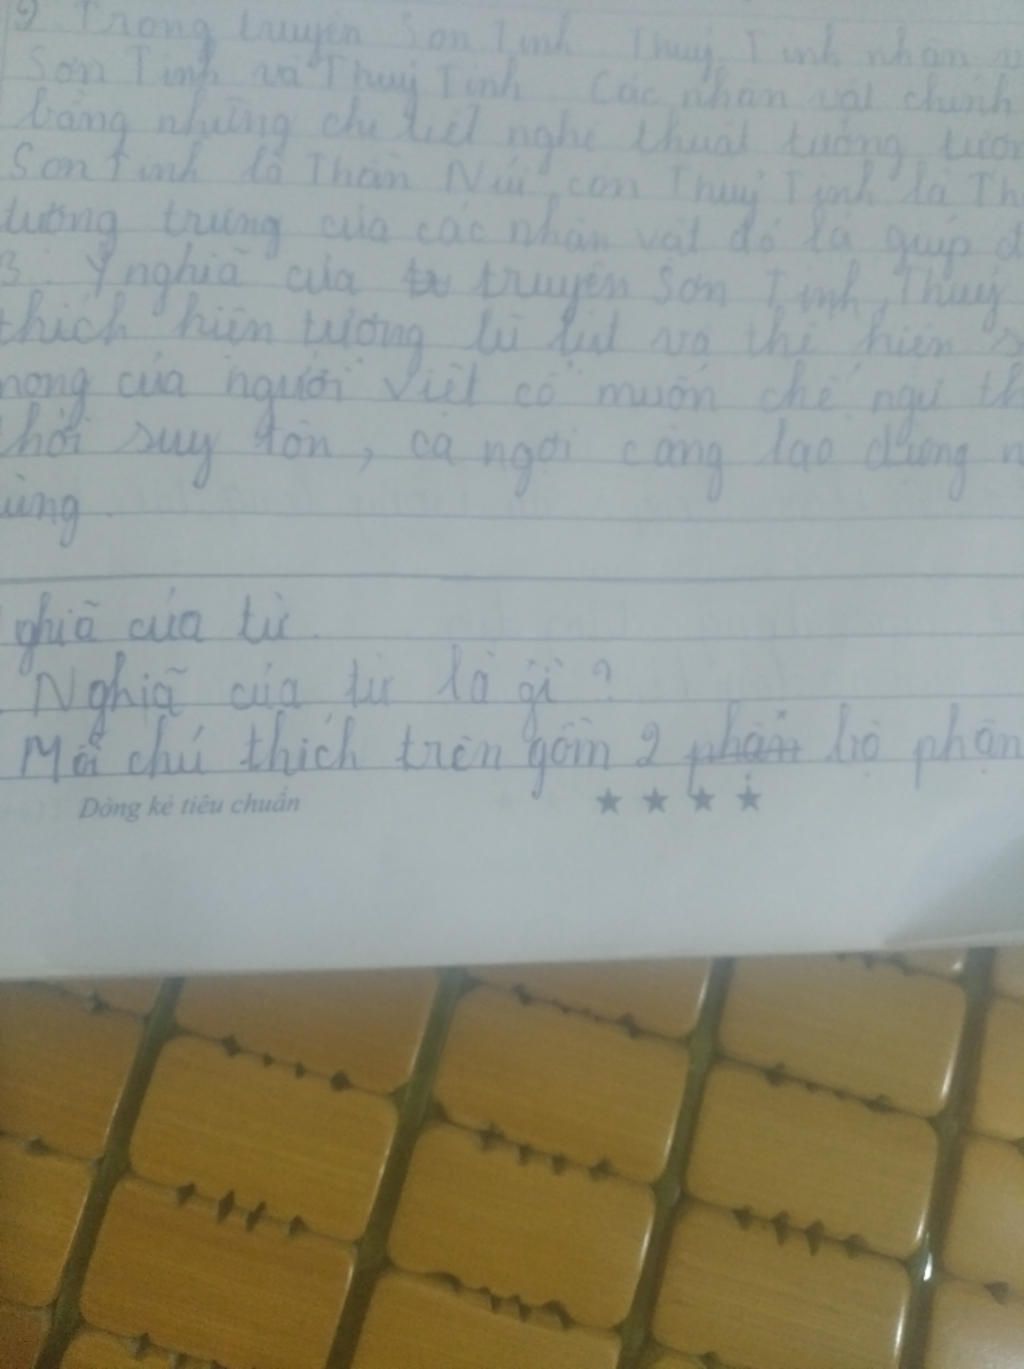 2 Trong truyện Sơn Tinh Thuỷ Tinh nhân v
Sơn Tinh và Thuỷ Tinh Các nhân vật chính
bằng những chi tiết nghệ thuật tưởng tượn
Sơn Tinh là Thần Núi, còn Thuỷ Tinh là Th
tượng trưng của các nhân vật đó là giúp d
3. Ý nghĩa của truyện Sơn Tinh, Thuỷ
thích hiện tượng lũ lụt và thể hiện s
mong của người Việt cổ muốn chế ngự th
thời suy tôn, ca ngợi công lao dựng n
ùng.
ghĩa của từ.
Nghĩa của từ là gì?
Mỗi chú thích trên gồm 2 phần bộ phận
Dòng kẻ tiêu chuẩn